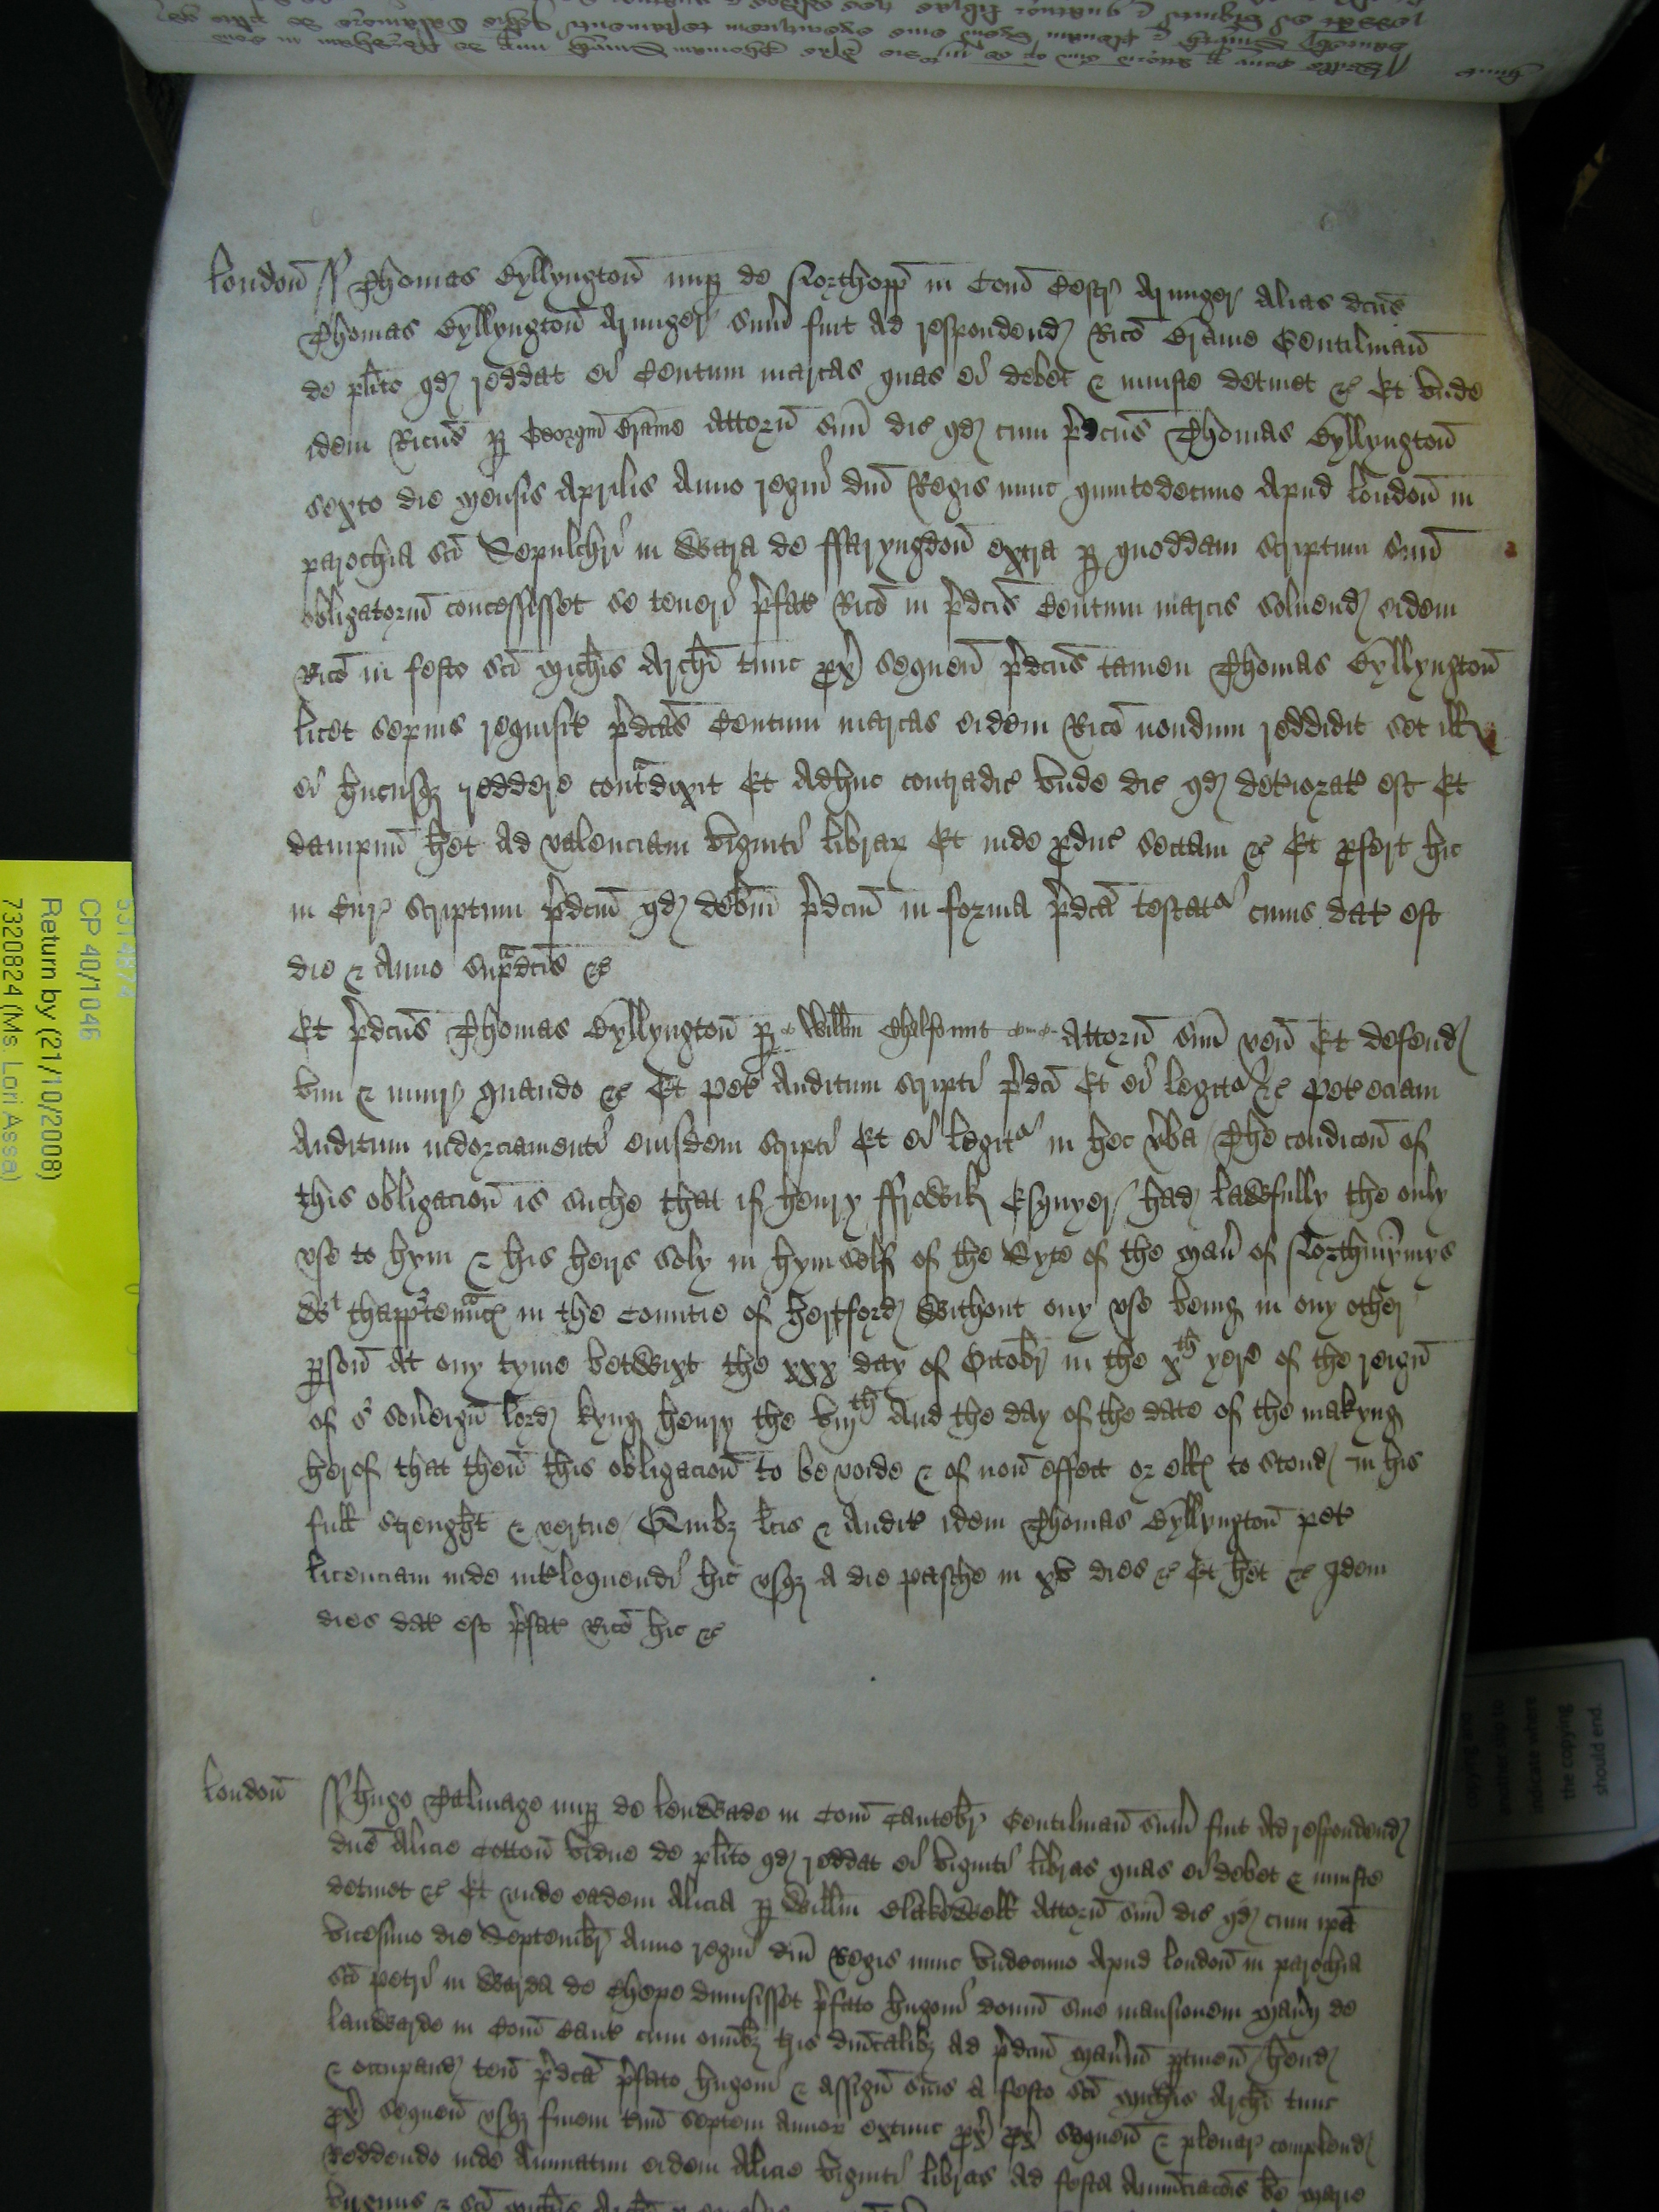 londoñ ss Thomas Eyllyngtoñ nup de Northopp in Com̄ Cestr Armiger alias dcūs
Thomas Eyllyngtoñ Armiger sum̄ fuit ad respondend Ricō Erāme Gentilmañ
de plīto qd reddat ei Centum marcas quas ei debet & iniuste detinet &c Et unde
idem Ricūs p Georgiū Erāme attorn̄ suū dic qd cum p̄dcūs Thomas Eyllyngtoñ
sexto die mensis Aprilis Anno regni dn̄i Regis nunc quintodecimo Apud londoñ in
parochia scī Sepulchri in Warda de ffaryngdoñ extra p quoddam scriptum suū
obligatoriū concessisset se teneri p̄fat Ricō in p̄dcīs Centum marcis solvend eidem
Ricō in festo scī Michīs Archī tunc px̄ sequeñ p̄dcūs tamen Thomas Eyllyngtoñ
licet sepius requisit p̄dcās Centum marcas eidem Ricō nondum reddidit set ill
ei hucusq reddere contadixit Et adhuc contradic unde dic qd deteriorat est Et
dampnū het ad valenciam viginti librar Et inde pduc sectam &c Et pfert hic
in Cur scriptum p̄dcm̄ qd debm̄ p̄dcm̄ in forma p̄dcā testat cuius dat est
die & Anno supadcīs &c
Et p̄dcūs Thomas Eyllyngtoñ p Willm̄ Chalfount Attorn̄ suū veñ Et defend
vim & iniur quando &c Et pet auditum scripti p̄dcī Et ei legit &c pet eciam
Auditum indorciamenti eiusdem scripti Et ei legit in hec vba The condicoñ of
this obligacioñ is suche that if henry ffrowik Esquyer had lawfully the only
use to hym & his heirs soly in hym self of the Syte of the Mañ of Northmȳmys
wt thapptenncͣ in the Countie of hertford without ony use being in ony other
psoñ at ony tyme betwixt the xxx day of Octobr in the xth yere of the reigñ
of oʳ soveigñ lord kyng henry the viijth And the day of the date of the makyng
herof that theñ this obligacioñ to be voide & of noñ effect or ell to stond in his
full strenght & vertue Quibz lc̄is & audit idem Thomas Eyllyngtoñ pet
licenciam inde intloquendi hic usq a die pasche in xv dies &c Et het &c Idem
dies dat est p̄fat Ricō hic &c
londoñ ss hugo Talmage nup de landwade in Com̄ Cantebr Gentilmañ sum̄ fuit ad respondend
dn̄e Alicie Cottoñ vidue de plīto qd reddat ei viginti libras quas ei debet & iniuste
detinet &c Et unde eadem Alicia p Willm̄ Blakewell attorn̄ suū dic qd cum ipā
vicesimo die Septembr Anno regni dn̄i Regis nunc undecimo Apud londoñ in parochia
scī petri in Warda de Chepe dimisisset p̄fato hugoni domū sive mansionem Manij de
landwarde in Com̄ Cant cum omībz tris dn̄icalibz ad p̄dcm̄ Manīū ptineñ hend
& occupand teñ p̄dcā p̄fato hugoni & assigñ suis a festo scī Michīs Archī tunc
px̄ sequeñ usq finem tmī septem annor extunc px̄ px̄ sequeñ & plenar complend
Reddendo inde Annuatim eidem Alicie viginti libras ad festa Annūciacōis bē Marie
virginis & scī Michīs Archī
CP 40/1046
Return by (21/10/2008)
7320824 (Ms. Lori Assa)
another slip to
indicate where
the copying
should end.